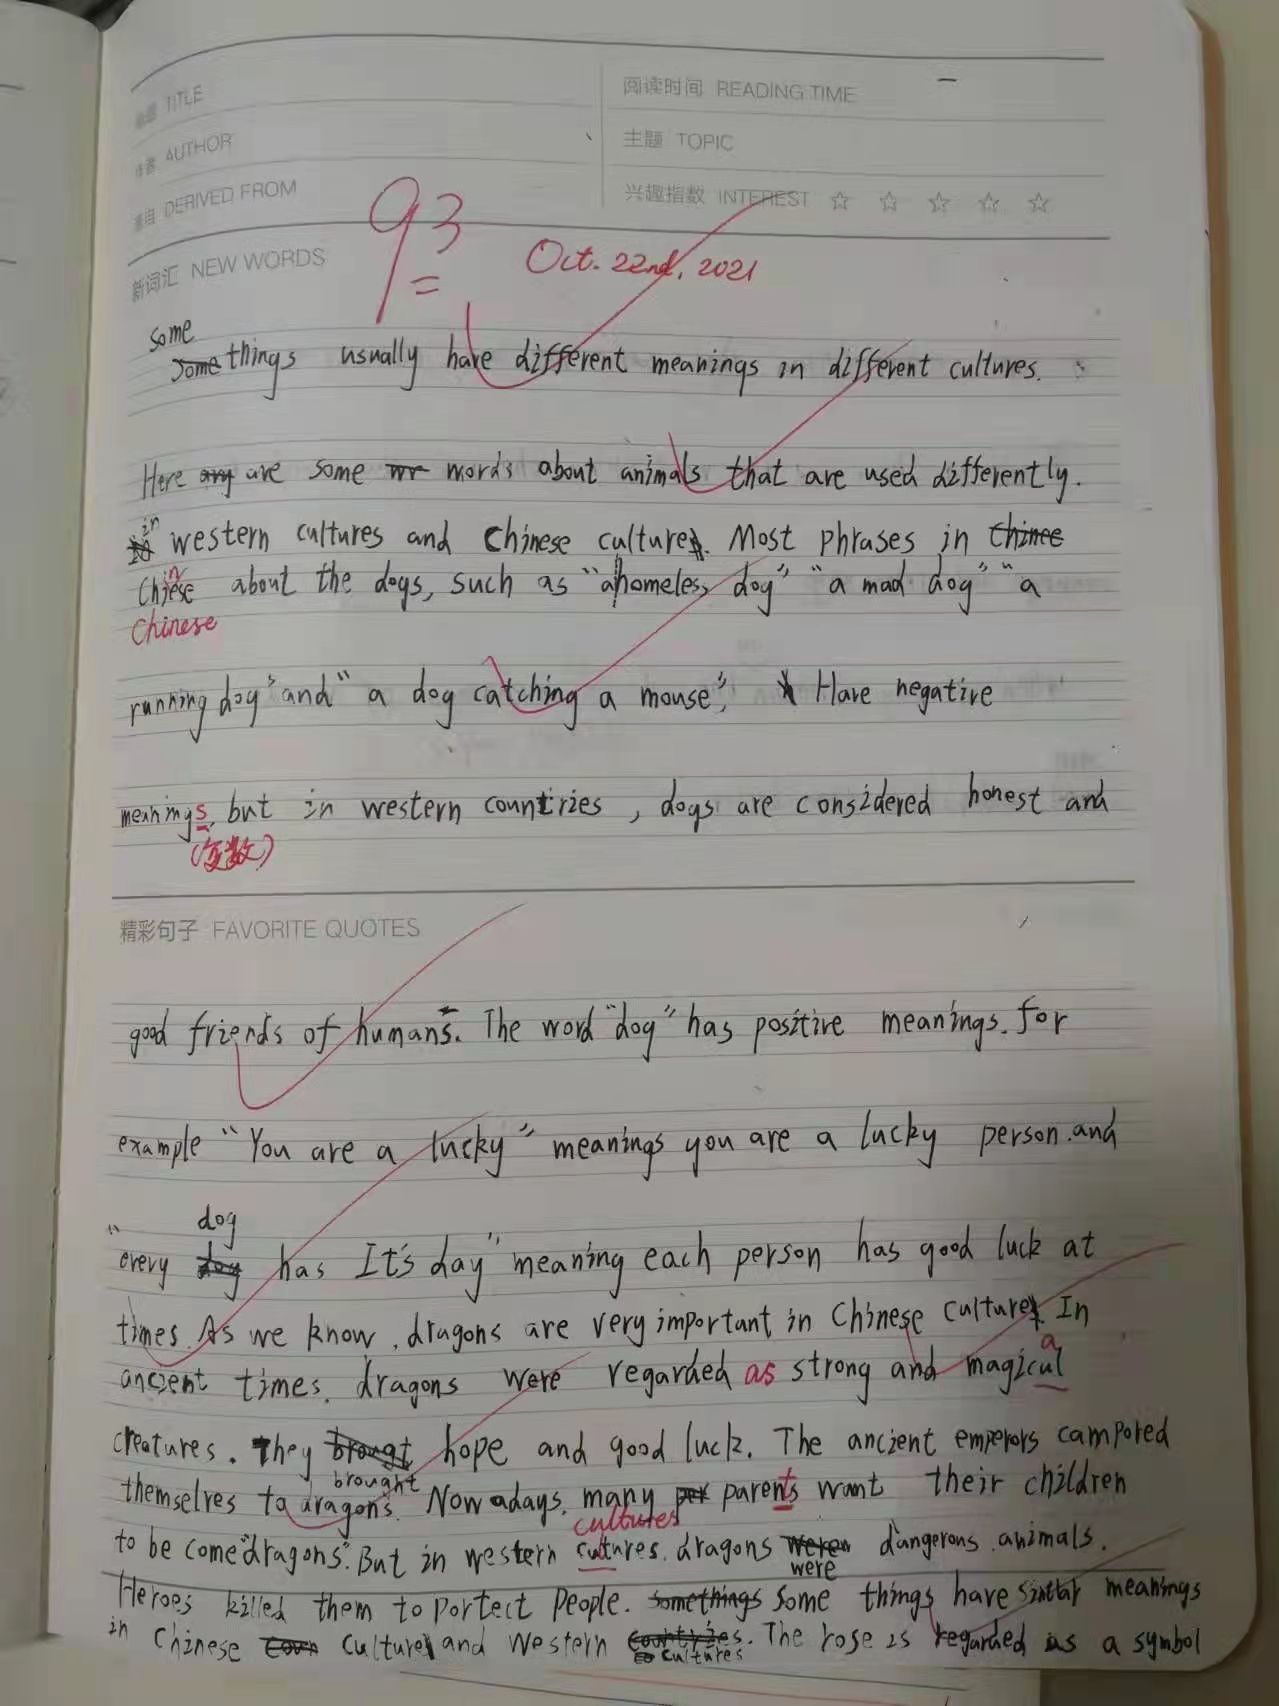 标题 TITLE
阅读时间 READING TIME
作者 AUTHOR
主题 TOPIC
选自 DERIVED FROM
兴趣指数 INTEREST ☆ ☆ ☆ ☆ ☆
93
Oct. 22nd, 2021
新词汇 NEW WORDS
some
things usually have different meanings in different cultures.
Here are some words about animals that are used differently.
in western cultures and Chinese culture. Most phrases in
Chinese about the dogs, such as "a homeless dog" "a mad dog" "a
Chinese
running dog" and "a dog catching a mouse", Have negative
meanings, but in western countries, dogs are considered honest and
(复数)
精彩句子 FAVORITE QUOTES
good friends of humans. The word "dog" has positive meanings. for
example "You are a lucky" meanings you are a lucky person. and
dog
"every has It's day" meaning each person has good luck at
times. As we know, dragons are very important in Chinese culture. In
ancient times, dragons were regarded as strong and magical
creatures. They hope and good luck. The ancient emperors campored
brought
themselves to dragons. Nowadays, many parents want their children
cultures
to be come "dragons". But in western cultures, dragons dangerous animals.
were
Heroes killed them to portect people. Some things have meanings
in Chinese culture and Western. The rose is regarded as a symbol
cultures